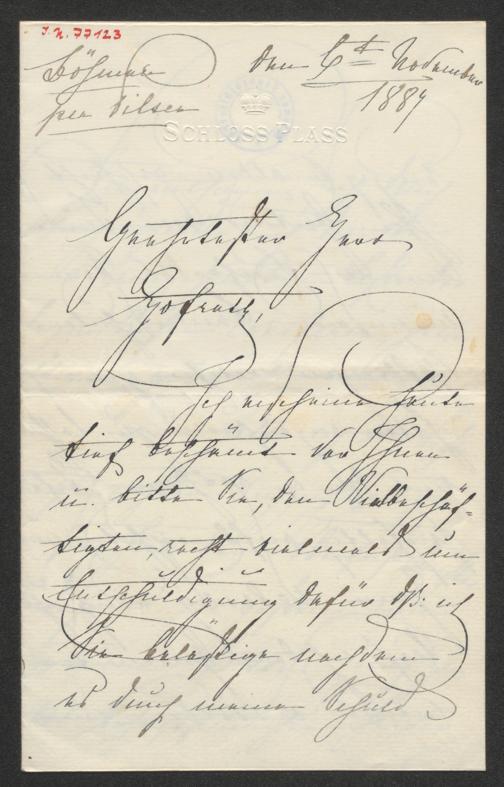 J. N. 77123
Böhmen
per Pilsen
den 5t November
1887
SCHLOSS PLASS
Geehrtester Herr
Hofrath,
Ich erscheine heute
tief beschämt vor Ihnen
u. bitte Sie, den Vielbeschäf-
tigten, recht vielmals um
Entschuldigung dafür dß: ich
Sie belästige nachdem
es durch meine Schuld